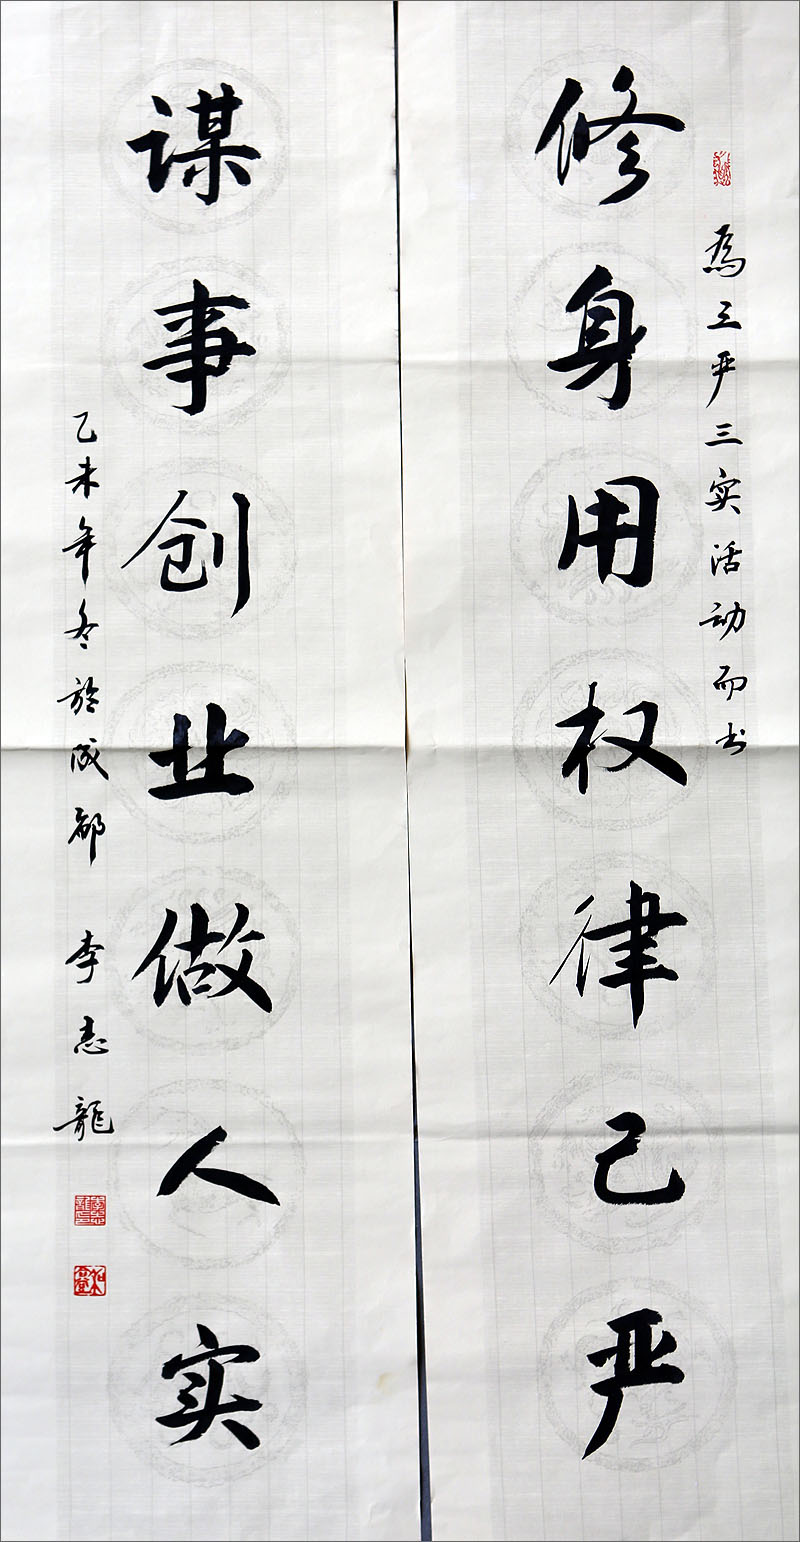 为三严三实活动而书
修身用权律己严
谋事创业做人实
乙未年冬於成都 李志龍